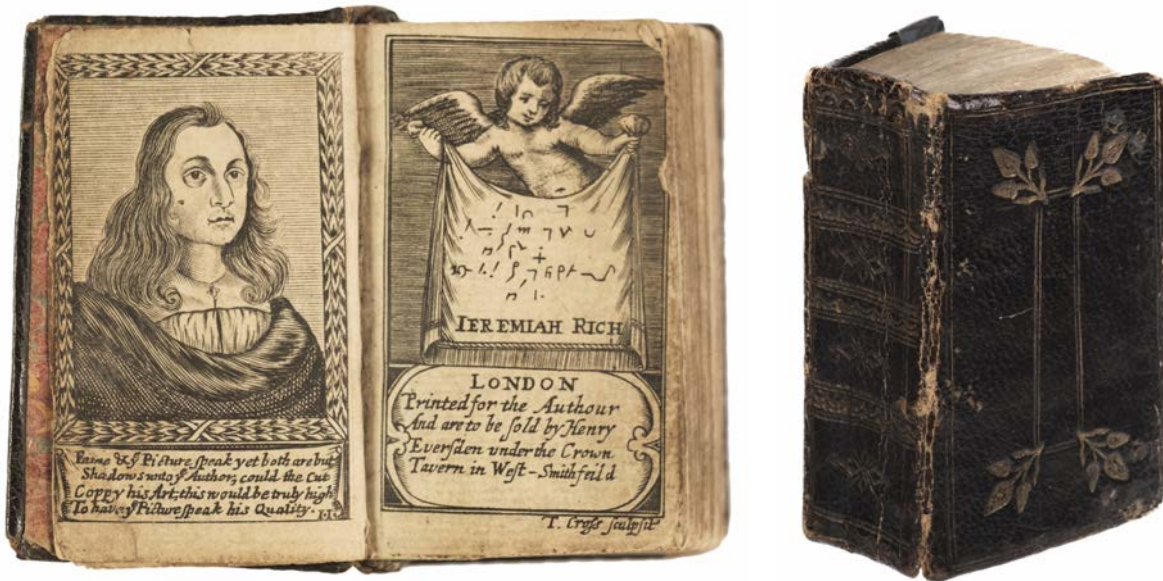 Fame & yͤ Picture speak yet both are but
Shadows unto yͤ Author; could the Cut
Coppy his Art; this would be truly high
To have yͤ Picture speak his Quality. I·I·
IEREMIAH RICH
LONDON
Printed for the Authour
And are to be sold by Henry
Eversden under the Crown
Tavern in West-Smithfeild
T. Cross sculpsit